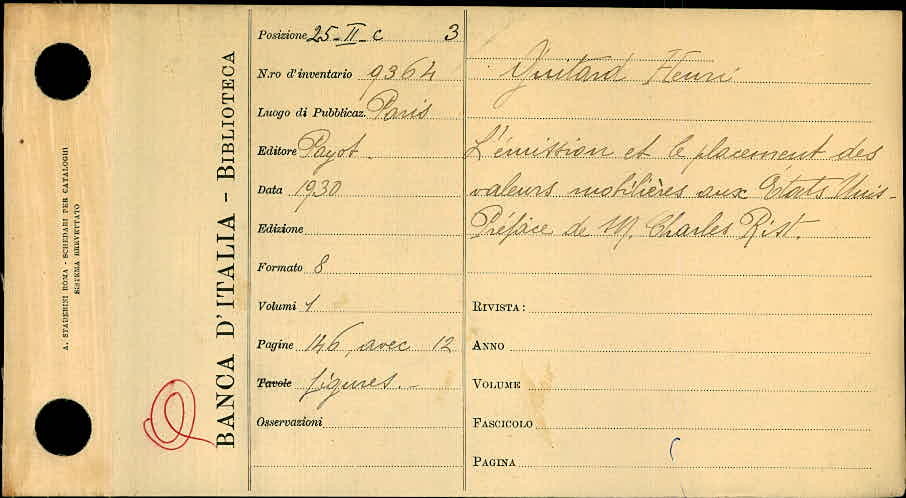 A. STADERINI ROMA - SCHEDARI PER CATALOGHI
SISTEMA BREVETTATO
BANCA D'ITALIA - BIBLIOTECA
Posizione 25-II-c 3
N.ro d'inventario 9364
Luogo di Pubblicaz. Paris
Editore Payot.
Data 1930
Edizione
Formato 8
Volumi 1
Pagine 146, avec 12
Tavole figures.-
Osservazioni
Guitard Henri
L'émission et le placement des
valeurs mobilières aux États Unis-
Préface de M. Charles Rist.
RIVISTA:
ANNO
VOLUME
FASCICOLO
PAGINA